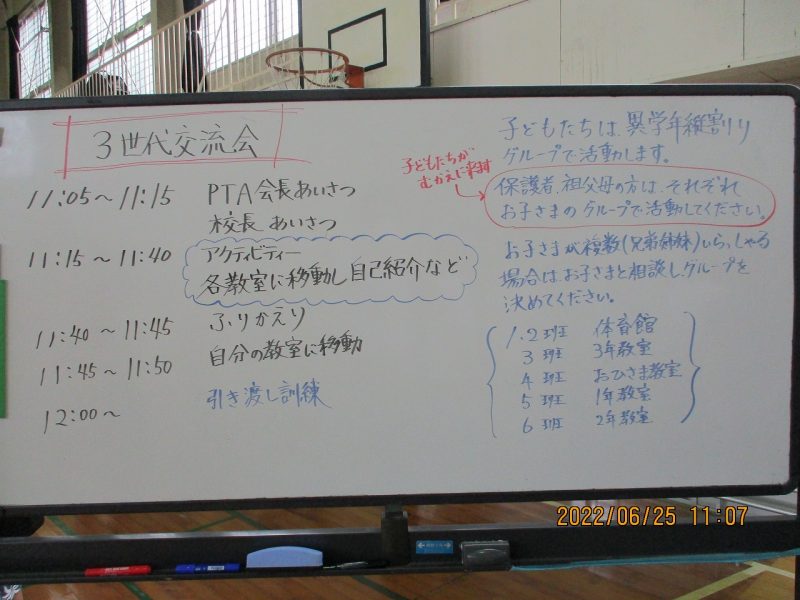 3世代交流会
11:05～11:15 PTA会長あいさつ
校長あいさつ
11:15～11:40 アクティビティー
各教室に移動し自己紹介など
11:40～11:45 ふりかえり
11:45～11:50 自分の教室に移動
12:00～ 引き渡し訓練
子どもたちは、異学年縦割り
グループで活動します。
子どもたちが
むかえに来ます
保護者、祖父母の方は、それぞれ
お子さまのグループで活動してください。
お子さまが複数(兄弟姉妹)いらっしゃる
場合は、お子さまと相談しグループを
決めてください。
1.2班 体育館
3班 3年教室
4班 おひさま教室
5班 1年教室
6班 2年教室
2022/06/25 11:07